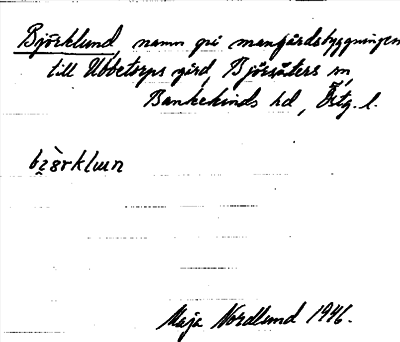 Björklund, namn på mangårdsbyggningen
till Ubbetorps gård, Björsäters sn,
Bankekinds hd, Östg. l.
bı̯ö̀rklɯn
Maja Nordlund 1946.